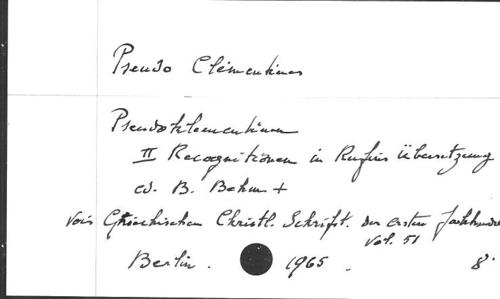 Pseudo Clémentines
Pseudoklementinen
II Recognitionen in Rufins Übersetzung
ed. B. Rehm +
voir Griechischen Christl. Schrift. der ersten Jahrhundert
vol. 51
Berlin. 1965. 8°